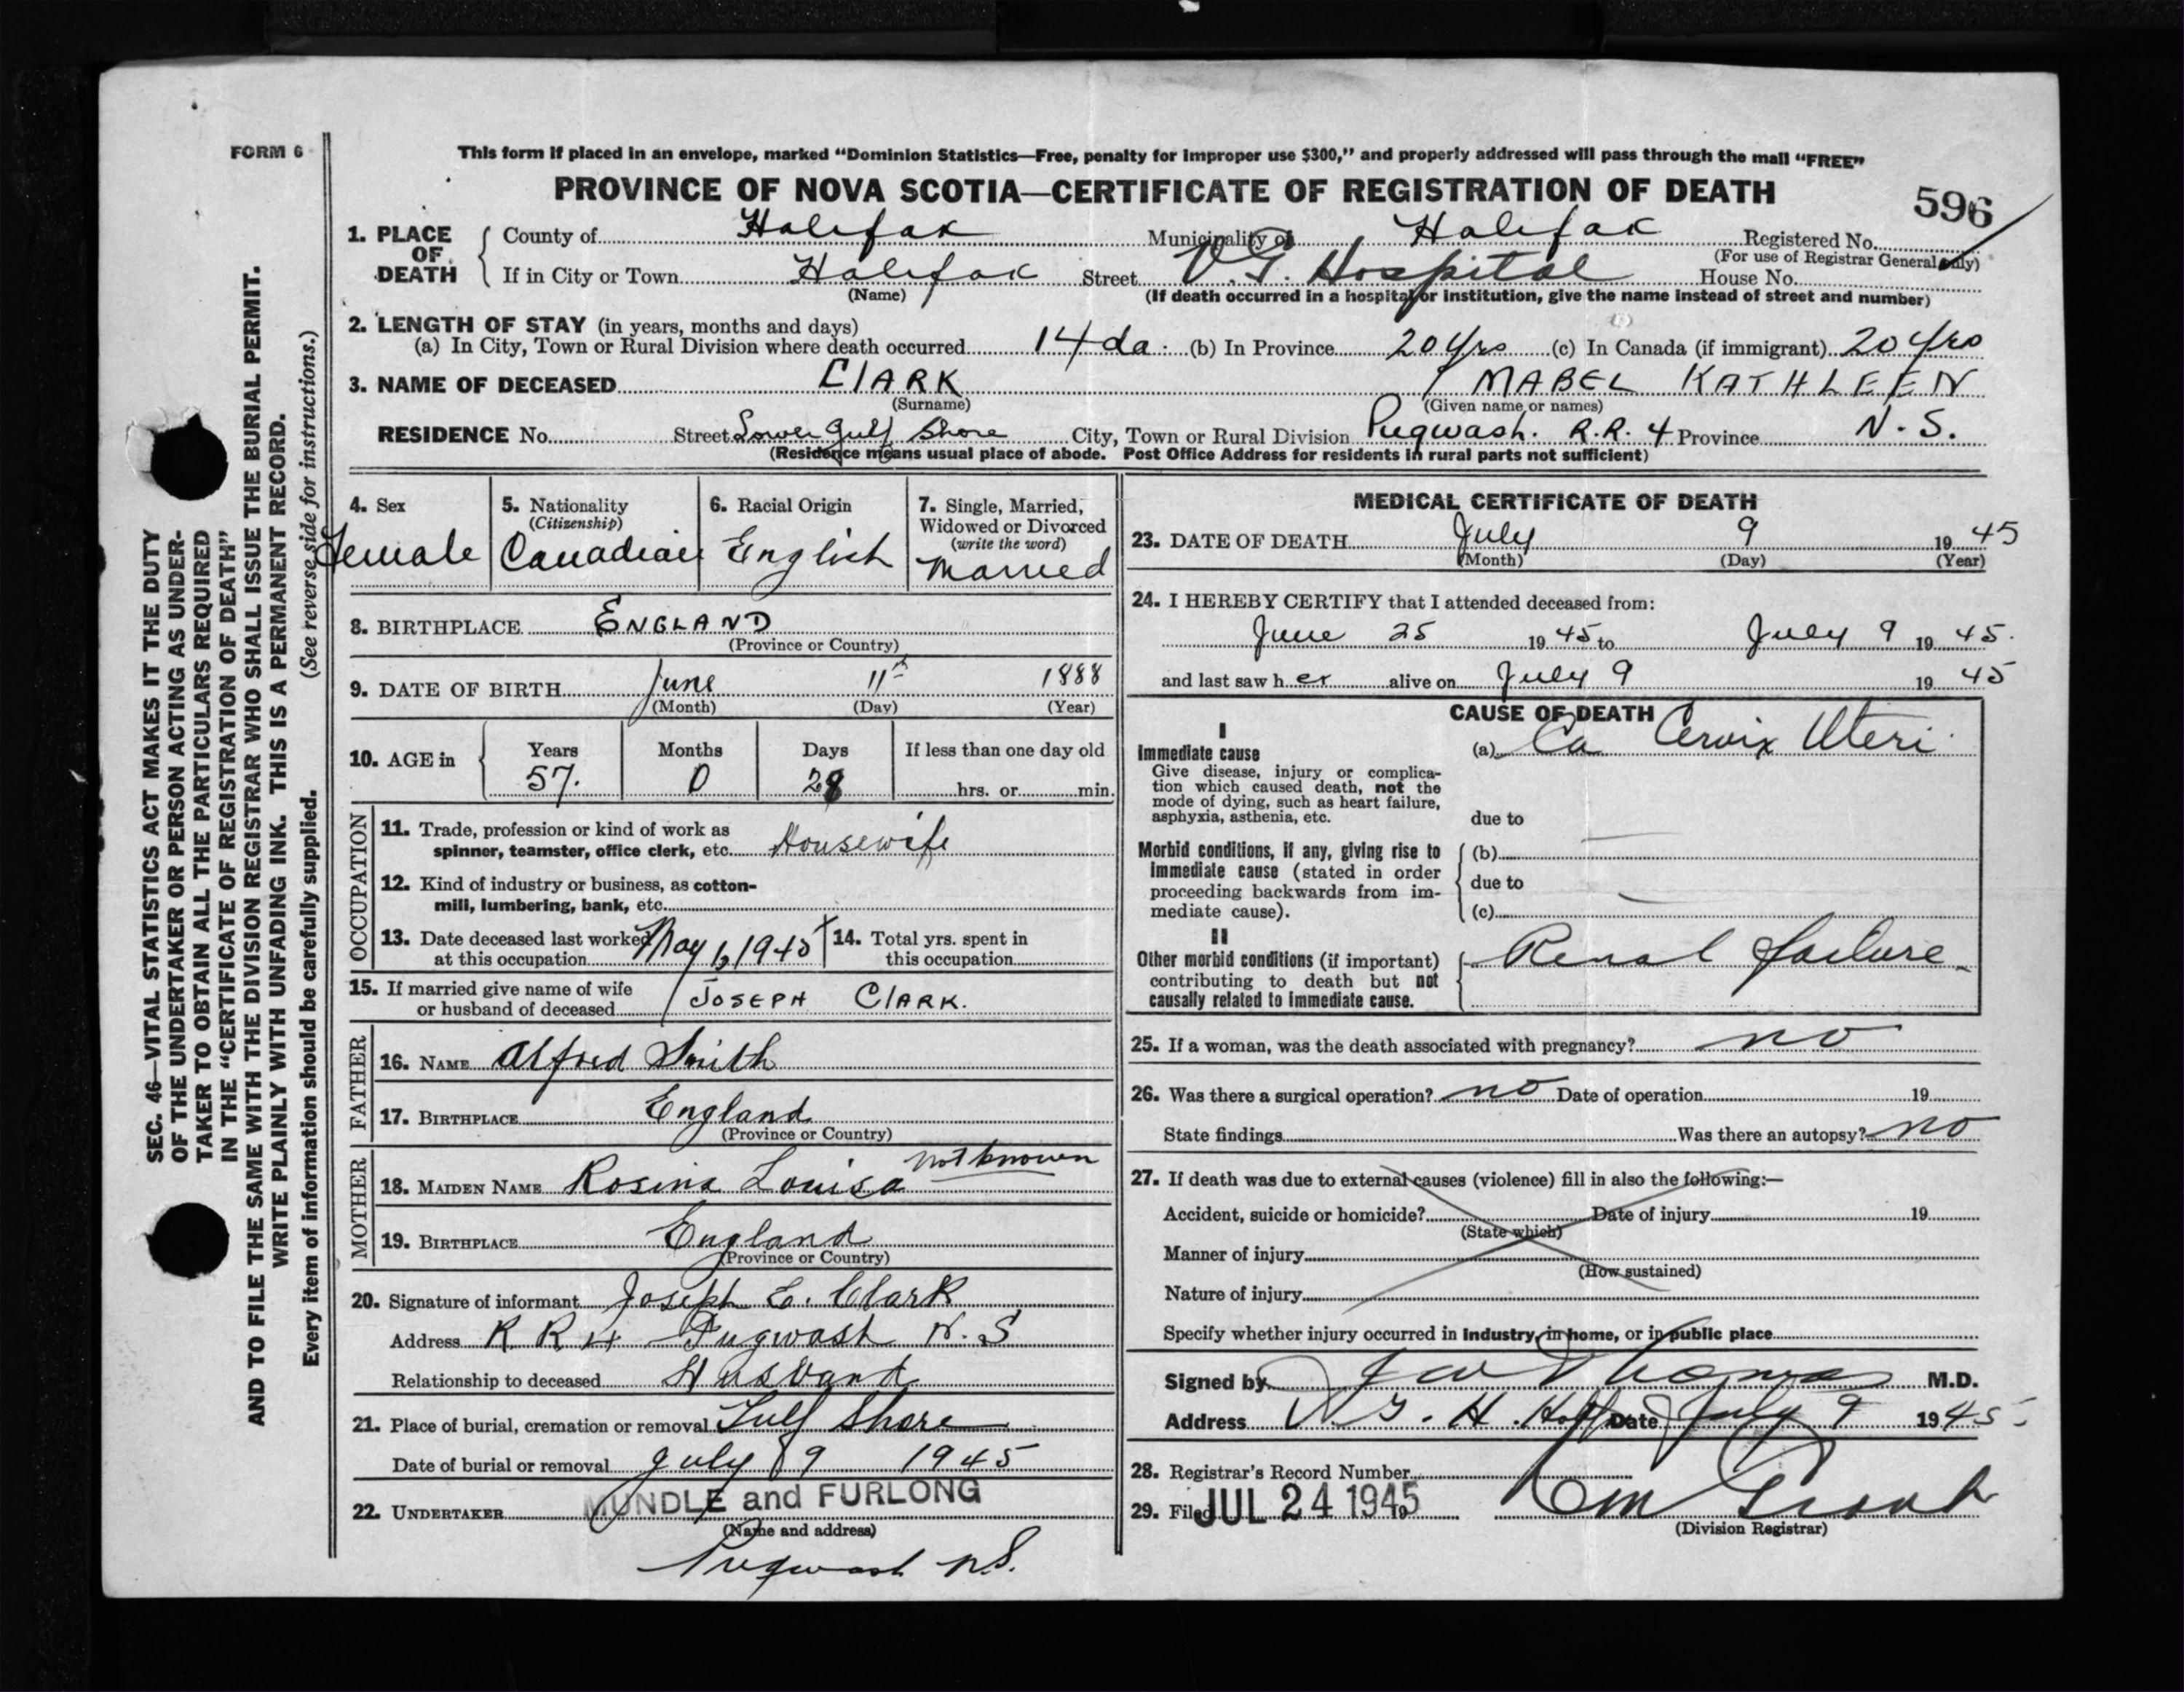 FORM 6
This form if placed in an envelope, marked “Dominion Statistics—Free, penalty for improper use $300,” and properly addressed will pass through the mail “FREE”
PROVINCE OF NOVA SCOTIA—CERTIFICATE OF REGISTRATION OF DEATH
596
1. PLACE OF DEATH
County of Halifax Municipality of Halifax Registered No.
(For use of Registrar General only)
If in City or Town Halifax Street V.G. Hospital House No.
(Name) (If death occurred in a hospital or institution, give the name instead of street and number)
2. LENGTH OF STAY (in years, months and days)
(a) In City, Town or Rural Division where death occurred 14 da. (b) In Province 20 yrs (c) In Canada (if immigrant) 20 yrs
3. NAME OF DECEASED ClARK MABEL KATHLEEN
(Surname) (Given name or names)
RESIDENCE No. Street Lower Gulf Shore City, Town or Rural Division Pugwash. R.R. 4 Province N.S.
(Residence means usual place of abode. Post Office Address for residents in rural parts not sufficient)
4. Sex
Female
5. Nationality
(Citizenship)
Canadian
6. Racial Origin
English
7. Single, Married,
Widowed or Divorced
(write the word)
Married
8. BIRTHPLACE ENGLAND
(Province or Country)
9. DATE OF BIRTH June 11th 1888
(Month) (Day) (Year)
10. AGE in
Years Months Days If less than one day old
57. 0 28 hrs. or min.
OCCUPATION
11. Trade, profession or kind of work as
spinner, teamster, office clerk, etc. Housewife
12. Kind of industry or business, as cotton-
mill, lumbering, bank, etc.
13. Date deceased last worked
at this occupation May 1945
14. Total yrs. spent in
this occupation
15. If married give name of wife
or husband of deceased JOSEPH CLARK.
FATHER
16. NAME Alfred Smith
17. BIRTHPLACE England
(Province or Country)
MOTHER
18. MAIDEN NAME Rosina Louisa not known
19. BIRTHPLACE England
(Province or Country)
20. Signature of informant Joseph E. Clark
Address R R 4 Pugwash N.S
Relationship to deceased Husband
21. Place of burial, cremation or removal Gulf Shore
Date of burial or removal July 9 1945
22. UNDERTAKER MUNDLE and FURLONG
(Name and address)
Pugwash N.S.
MEDICAL CERTIFICATE OF DEATH
23. DATE OF DEATH July 9 1945
(Month) (Day) (Year)
24. I HEREBY CERTIFY that I attended deceased from:
June 25 1945 to July 9 1945.
and last saw her alive on July 9 1945
CAUSE OF DEATH
I
Immediate cause
Give disease, injury or complica-
tion which caused death, not the
mode of dying, such as heart failure,
asphyxia, asthenia, etc.
(a) Ca Cervix Uteri
due to
Morbid conditions, if any, giving rise to
immediate cause (stated in order
proceeding backwards from im-
mediate cause).
(b)
due to
(c)
II
Other morbid conditions (if important)
contributing to death but not
causally related to immediate cause.
Renal failure
25. If a woman, was the death associated with pregnancy? no
26. Was there a surgical operation? no Date of operation 19
State findings Was there an autopsy? no
27. If death was due to external causes (violence) fill in also the following:—
Accident, suicide or homicide? Date of injury 19
(State which)
Manner of injury
(How sustained)
Nature of injury
Specify whether injury occurred in industry, in home, or in public place
Signed by Thomas M.D.
Address V.G.H. Date July 9 1945
28. Registrar's Record Number
29. Filed JUL 24 1945
(Division Registrar)
SEC. 46—VITAL STATISTICS ACT MAKES IT THE DUTY
OF THE UNDERTAKER OR PERSON ACTING AS UNDER-
TAKER TO OBTAIN ALL THE PARTICULARS REQUIRED
IN THE “CERTIFICATE OF REGISTRATION OF DEATH”
AND TO FILE THE SAME WITH THE DIVISION REGISTRAR WHO SHALL ISSUE THE BURIAL PERMIT.
WRITE PLAINLY WITH UNFADING INK. THIS IS A PERMANENT RECORD.
Every item of information should be carefully supplied. (See reverse side for instructions.)